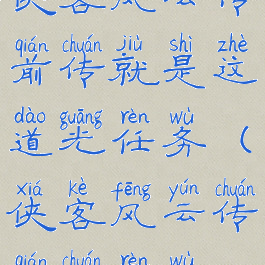 侠客风云传
qián chuán jiù shì zhè
前传就是这
dào guāng rèn wù
道光任务（
xiá kè fēng yún chuán
侠客风云传
qián chuán rèn wù